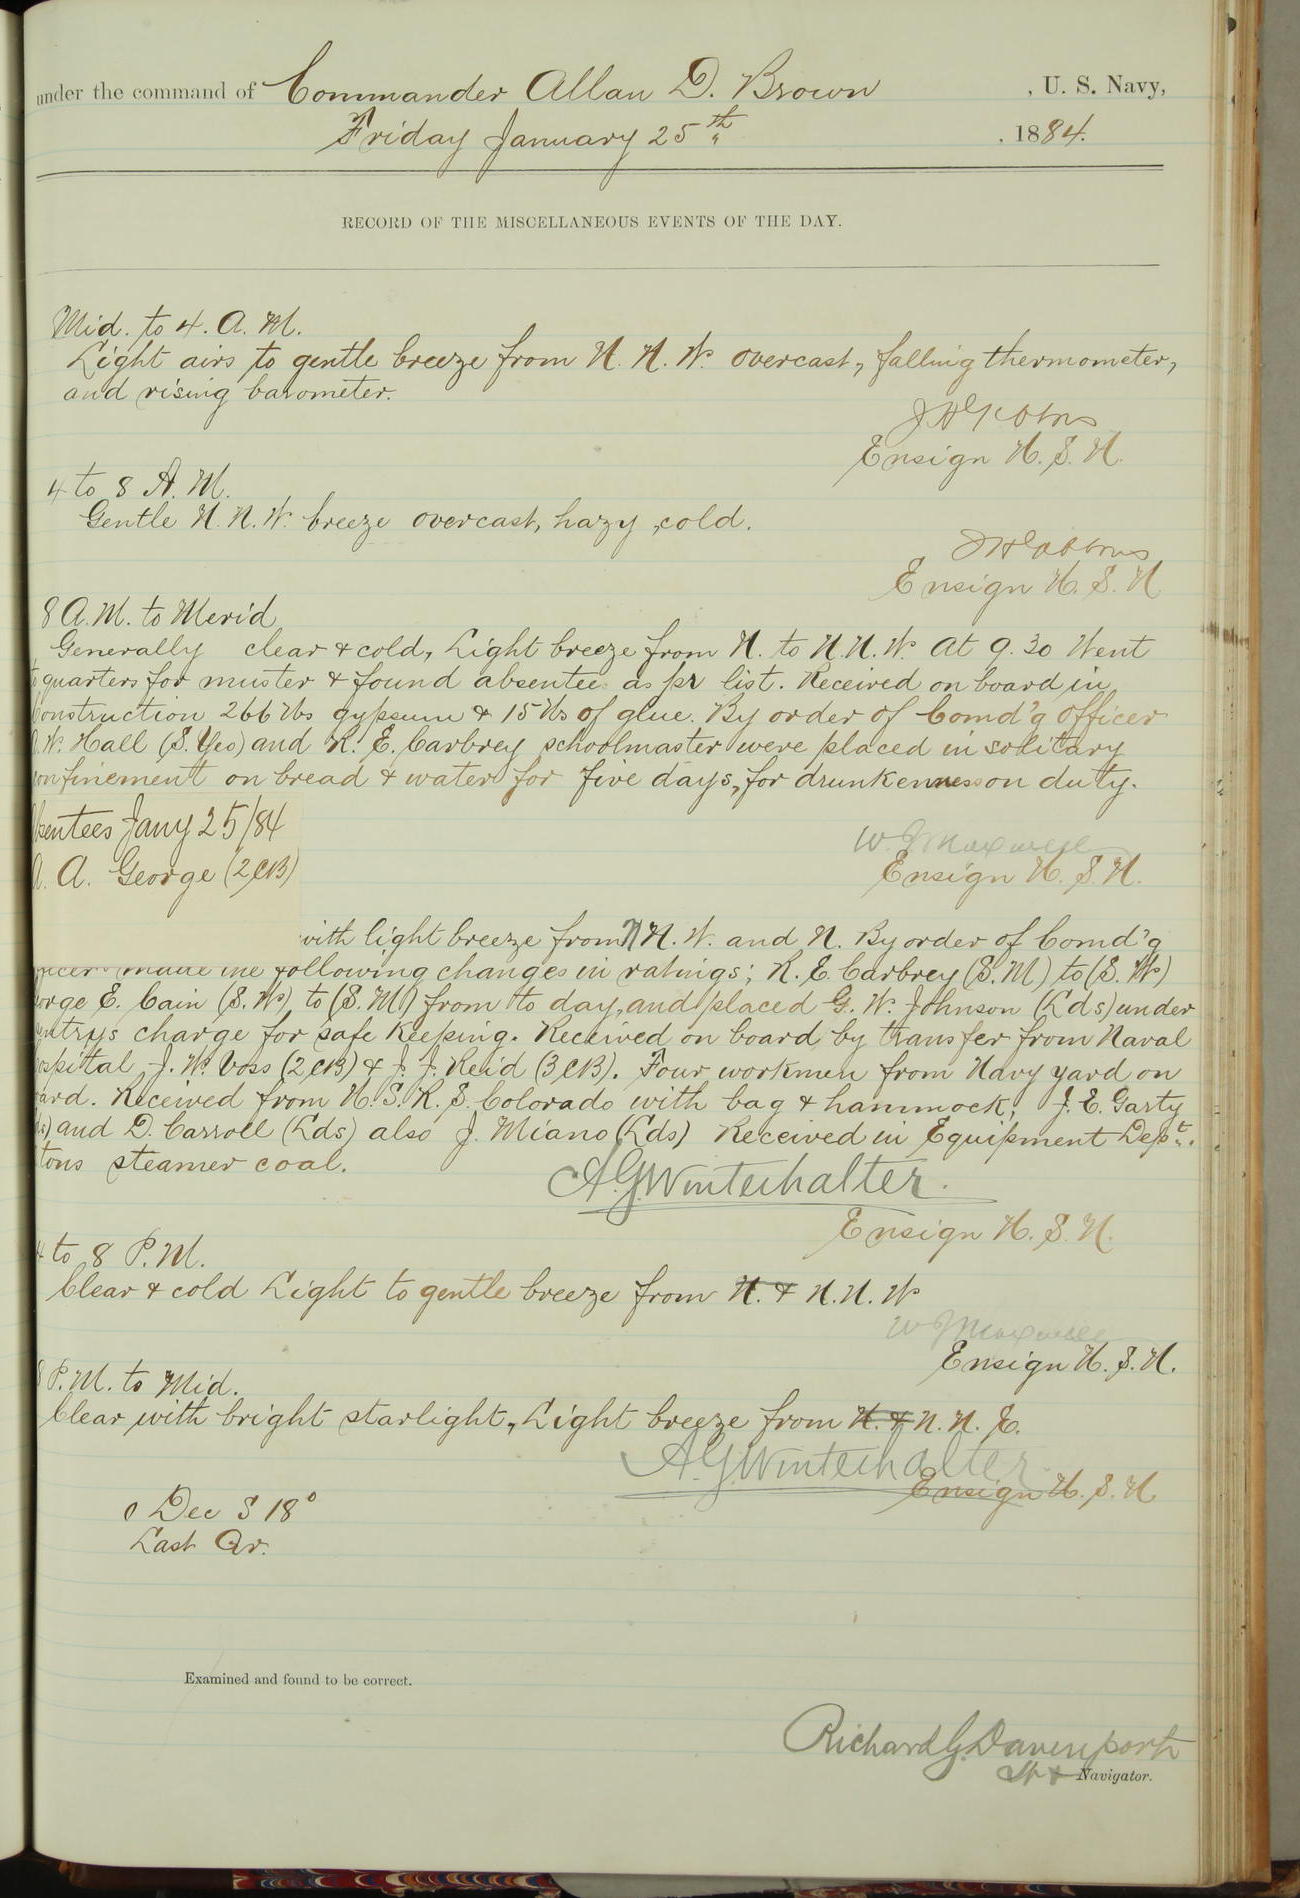 under the command of Commander Allan D. Brown , U. S. Navy,
Friday January 25th , 1884.
RECORD OF THE MISCELLANEOUS EVENTS OF THE DAY.
Mid. to 4. A. M.
Light airs to gentle breeze from N. N. W. overcast, falling thermometer,
and rising barometer.
Ensign U. S. N.
4 to 8 A. M.
Gentle N. N. W. breeze overcast, hazy, cold.
Ensign U. S. N
8 A. M. to Merid
Generally clear & cold, Light breeze from N. to N. N. W. At 9.30 Went
to quarters for muster & found absentee as pr list. Received on board in
Construction 266 lbs gypsum & 15 lbs of glue. By order of Comd'g Officer
W. Hall (S. Yeo) and R. E. Carbrey schoolmaster were placed in solitary
confinement on bread & water for five days, for drunkenness on duty.
Absentees Jany 25/84
A. George (2 CB)
W. J. Maxwell
Ensign U. S. N.
with light breeze from N N. W. and N. By order of Comd'g
Officer made the following changes in ratings; R. E. Carbrey (S. M) to (S. W)
George E. Cain (S. W) to (S. M) from to day, and placed G. W. Johnson (Lds) under
sentrys charge for safe keeping. Received on board by transfer from Naval
Hospital J. W. Voss (2 CB) & J. J. Reid (3 CB). Four workmen from Navy yard on
board. Received from U. S. R. S. Colorado with bag & hammock; J. E. Garty
and D. Carroll (Lds) also J. Miano (Lds) Received in Equipment Dept.
tons steamer coal.
A. G. Winterhalter.
Ensign U. S. N.
4 to 8 P. M.
Clear & cold Light to gentle breeze from N. & N. N. W
W J Maxwell
Ensign U. S. N.
8 P. M. to Mid.
Clear with bright starlight, Light breeze from N. & N. N. E.
A. G. Winterhalter
Ensign U. S. N
Dec S 18°
Last Qr.
Examined and found to be correct.
Richard G. Davenport
Navigator.